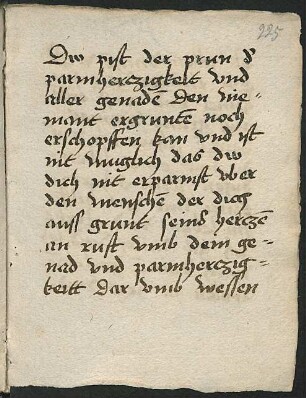 225
Dw pist der prun d
parmherczigkeit vnd
aller genadē Den nie-
mant ergrunten noch
erschopffen kan vnd ist
nit muglich das dw
dich nit erparmst vber
den mensche der dich
auss grunt seins herczē
an ruft vmb dem ge-
nad vnd parmherczig-
keitt Dar vmb wessen